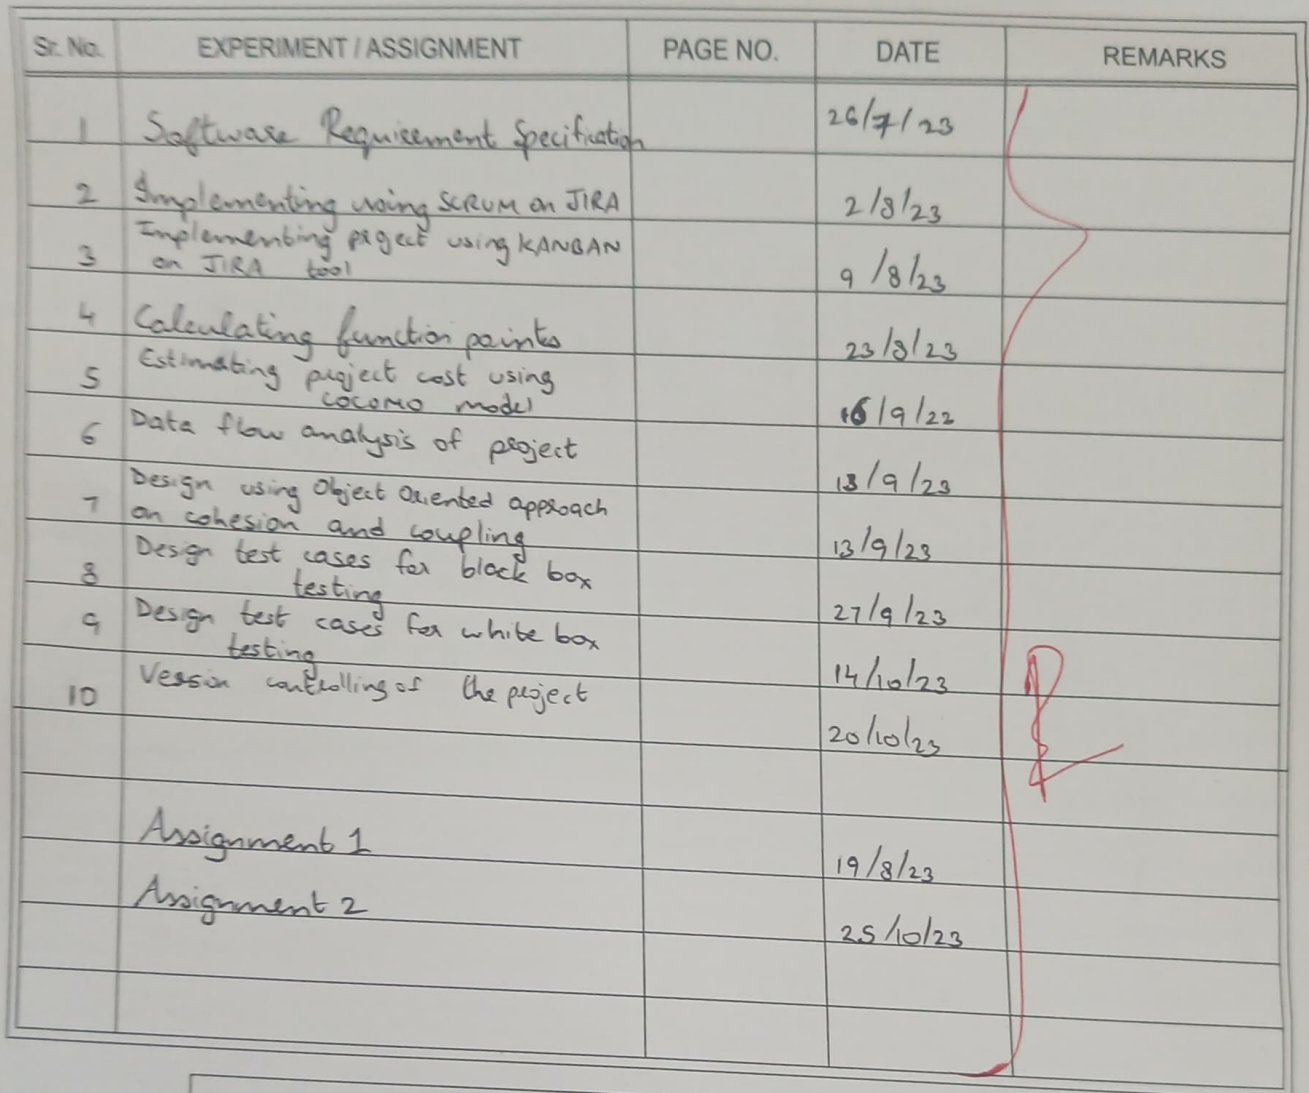 Sr. No. EXPERIMENT / ASSIGNMENT PAGE NO. DATE REMARKS
1 Software Requirement Specification 26/7/23
2 Implementing using SCRUM on JIRA 2/8/23
Implementing project using KANBAN
3 on JIRA tool 9/8/23
4 Calculating function points 23/8/23
Estimating project cost using
5 COCOMO model /9/22
6 Data flow analysis of project 13/9/23
Design using Object Oriented approach
7 on cohesion and coupling 13/9/23
Design test cases for black box
8 testing 27/9/23
9 Design test cases for white box
testing 14/10/23
10 Version controlling of the project 20/10/23
Assignment 1 19/8/23
Assignment 2 25/10/23